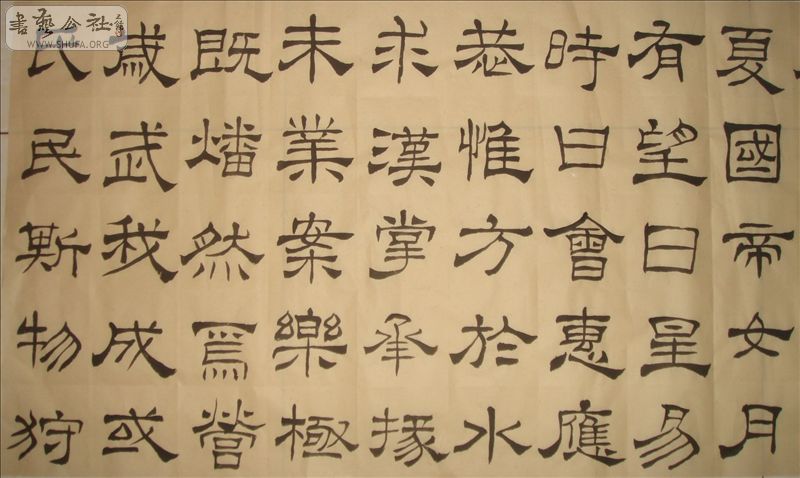 書藝公社
WWW.SHUFA.ORG
夏國帝女月
有望日星易
時日會惠應
恭惟方於水
求漢掌承掾
未業案樂極
既燔然焉營
歲武我成或
民民斯物狩